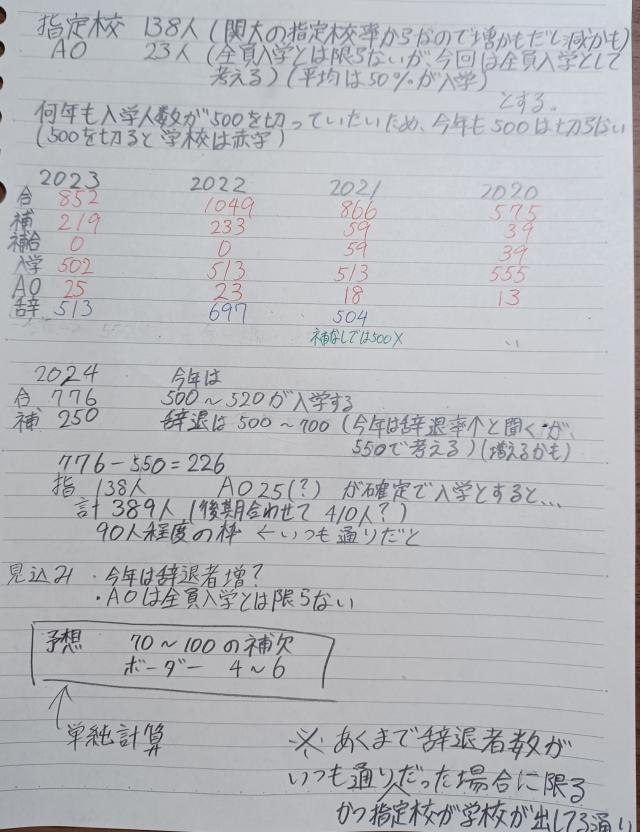 指定校 138人 (関大の指定校率からなので増かもだし減かも)
AO 23人 (全員入学とは限らないが、今回は全員入学として
考える) (平均は50%が入学)
とする。
何年も入学人数が500を切っていたいため、今年も500は切らない
(500を切ると学校は赤字)
2023 2022 2021 2020
合 852 1049 866 575
補 219 233 59 39
補合 0 0 59 39
入学 502 513 513 555
AO 25 23 18 13
辞 513 697 504
補なしでは500× 〃
2024 今年は
合 776 500~520が入学する
補 250 辞退は500~700 (今年は辞退率个と聞くが、
550で考える) (増えるかも)
776-550=226
指 138人 AO 25(?) が確定で入学とすると…
計 389人 (後期合わせて 410人?)
90人程度の枠 ←いつも通りだと
見込み ・今年は辞退者増?
・AOは全員入学とは限らない
予想 70~100の補欠
ボーダー 4~6
単純計算
※あくまで辞退者数が
いつも通りだった場合に限る
かつ指定校が学校が出してる通り